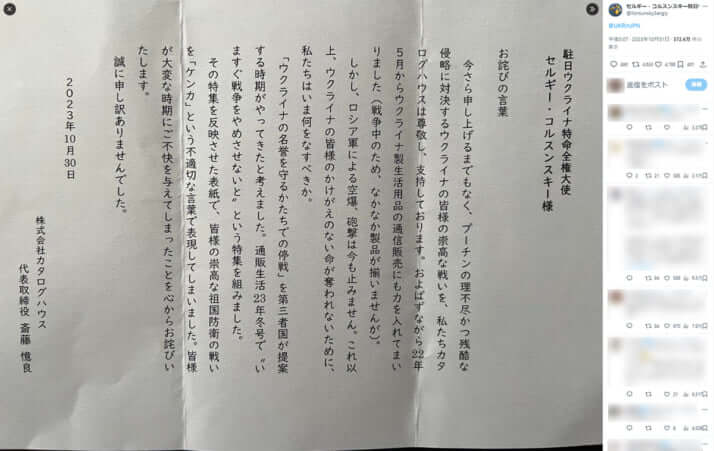 駐日ウクライナ特命全権大使
セルギー・コルスンスキー 様
お詫びの言葉
今さら申し上げるまでもなく、プーチンの理不尽かつ残酷な
侵略に対決するウクライナの皆様の崇高な戦いを、私たちカタ
ログハウスは尊敬し、支持しております。およばずながら22年
5月からウクライナ製生活用品の通信販売にも力を入れてまい
りました（戦争中のため、なかなか製品が揃いませんが）。
しかし、ロシア軍による空爆、砲撃は今も止みません。これ以
上、ウクライナの皆様のかけがえのない命が奪われないために、
私たちはいま何をなすべきか。
「ウクライナの名誉を守るかたちでの停戦」を第三者国が提案
する時期がやってきたと考えました。通販生活23年冬号で〝い
ますぐ戦争をやめさせないと〟という特集を組みました。
その特集を反映させた表紙で、皆様の崇高な祖国防衛の戦い
を「ケンカ」という不適切な言葉で表現してしまいました。皆様
が大変な時期にご不快を与えてしまったことを心からお詫びい
たします。
誠に申し訳ありませんでした。
2023年10月30日
株式会社カタログハウス
代表取締役 斎藤 憶良
セルギー・コルスンスキー
#UKRinJPN
2023年10月31日
返信をポスト